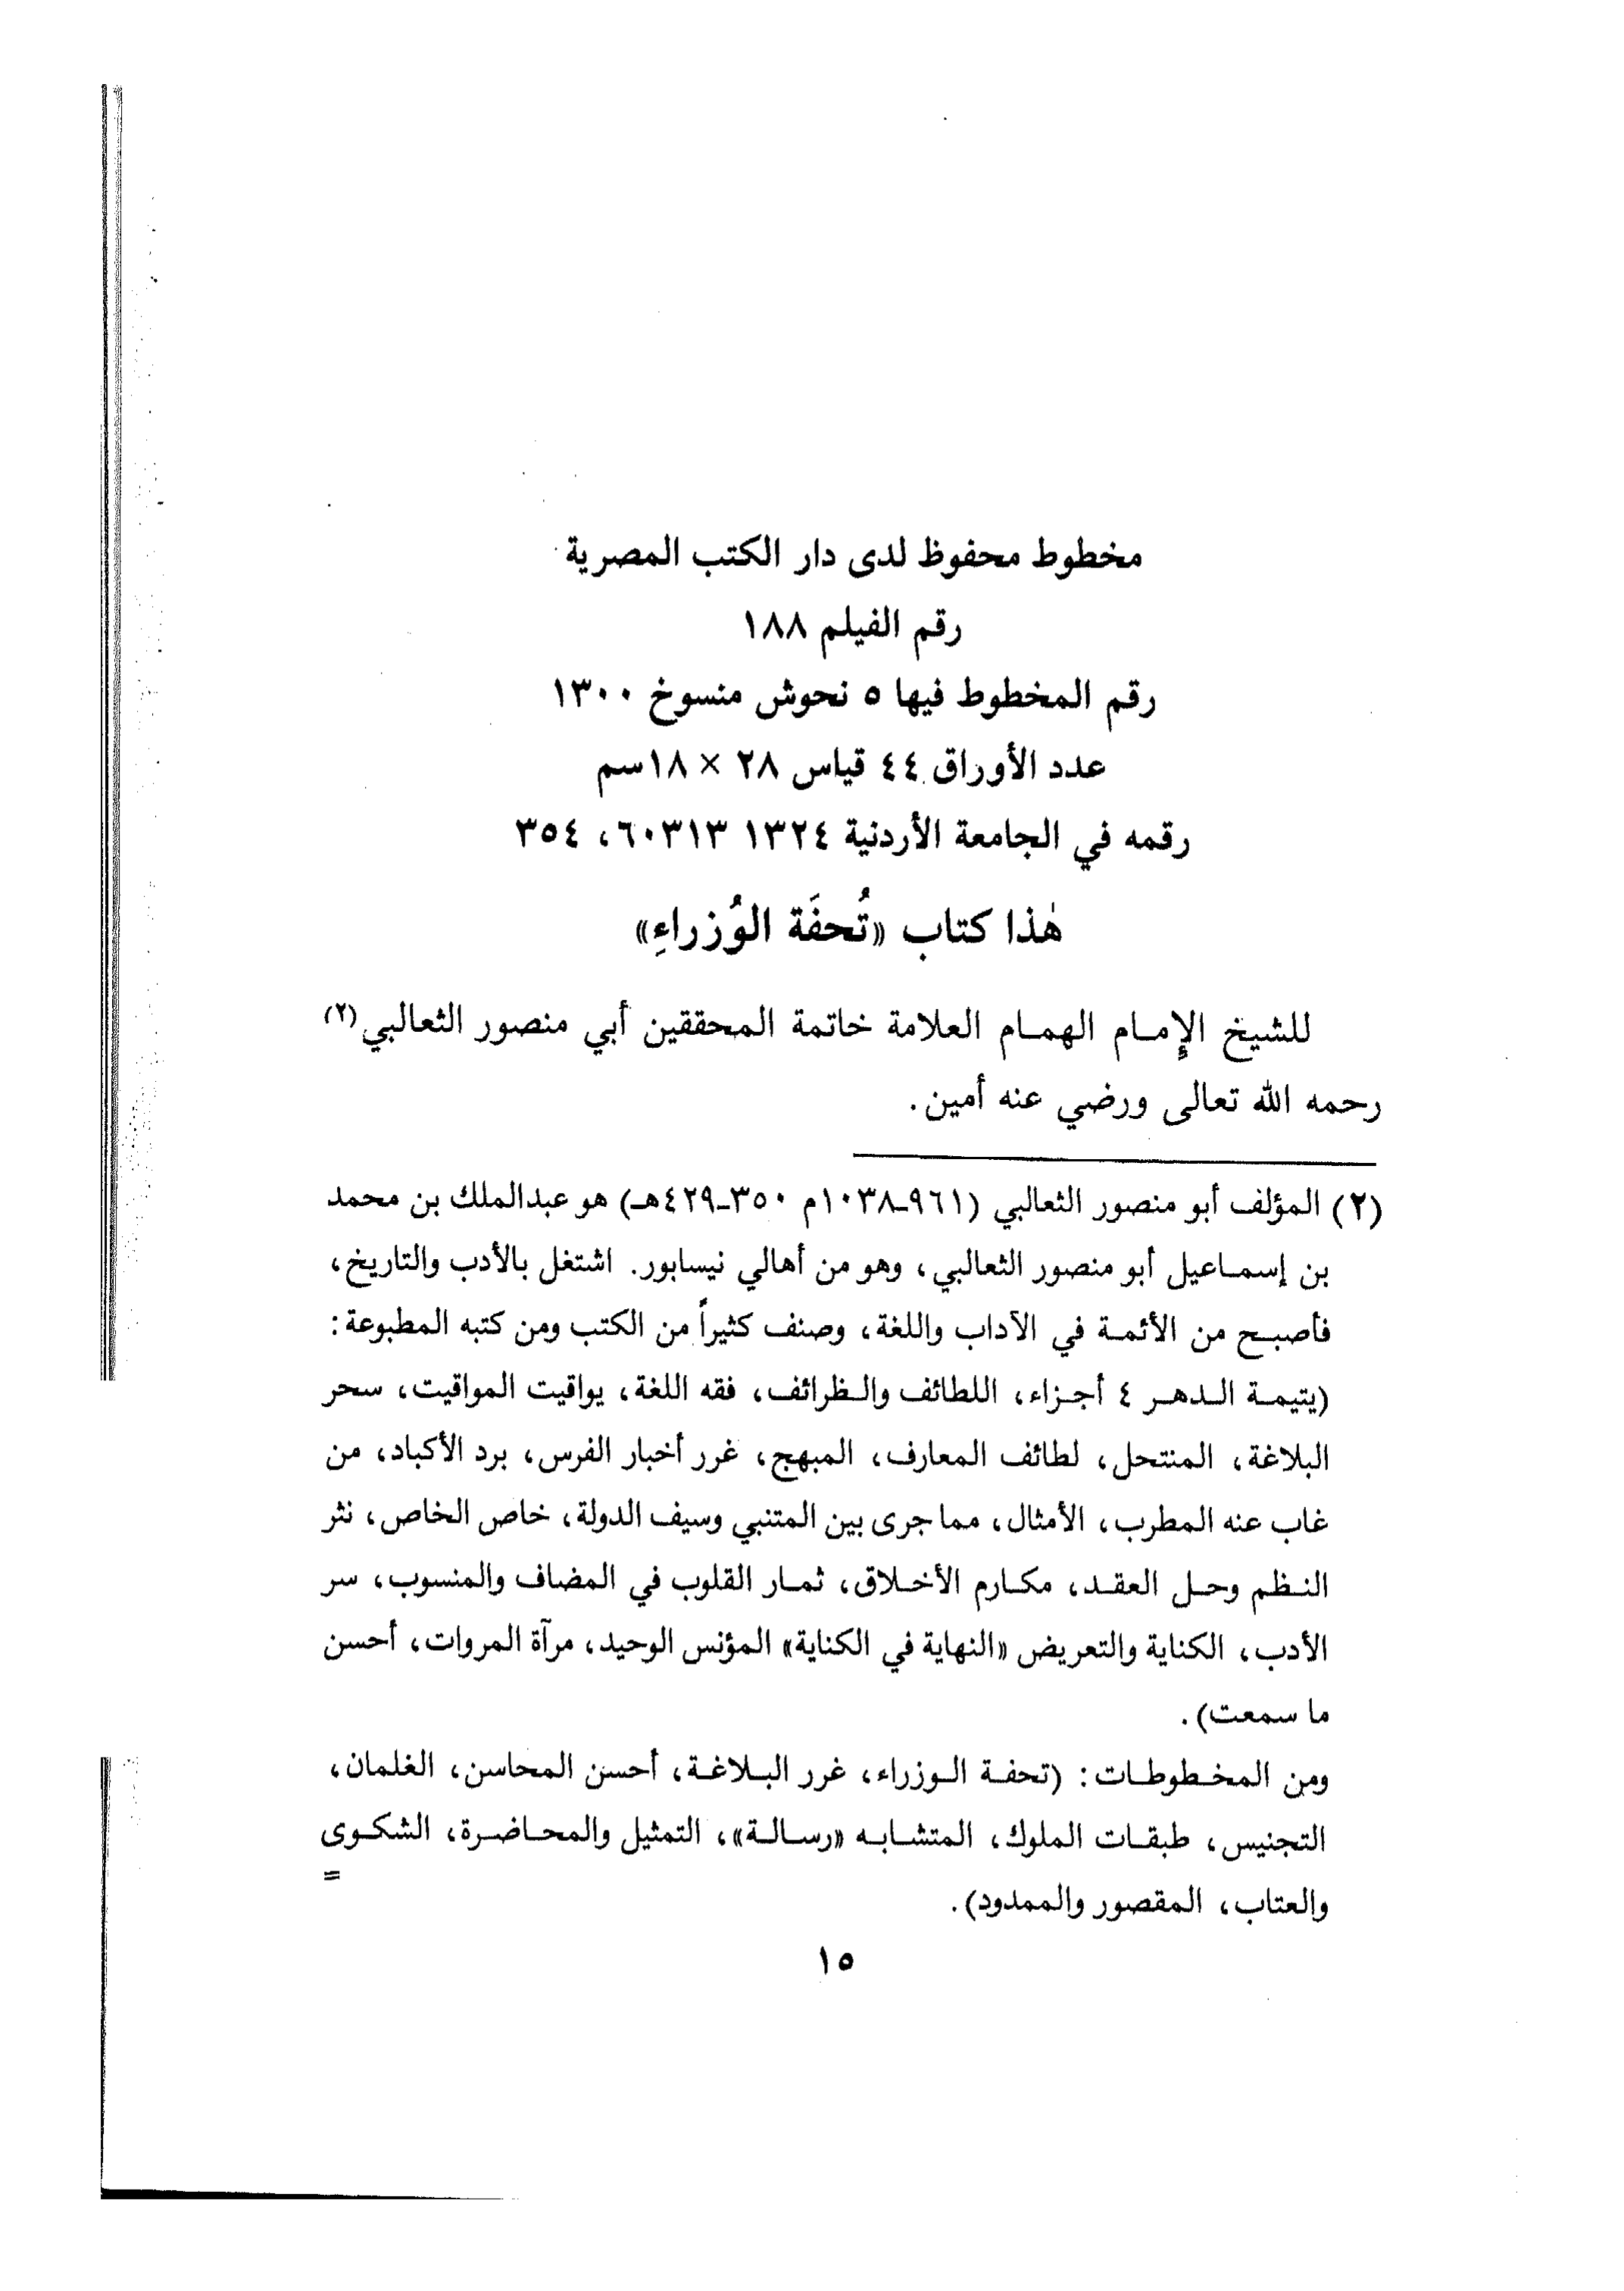 مخطوط محفوظ لدى دار الكتب المصرية
رقم الفيلم ١٨٨
رقم المخطوط فيها ٥ نحوش منسوخ ١٣٠٠
عدد الأوراق ٤٤ قياس ٢٨ × ١٨سم
رقمه في الجامعة الأردنية ١٣٢٤ ٦٠٣١٣، ٣٥٤
هٰذا كتاب «تُحفَة الوُزراءِ»
للشيخ الإمام الهمام العلامة خاتمة المحققين أبي منصور الثعالبي(٢)
رحمه الله تعالى ورضي عنه أمين.
(٢) المؤلف أبو منصور الثعالبي (٩٦١ـ١٠٣٨م ٣٥٠ـ٤٢٩هـ) هو عبدالملك بن محمد
بن إسماعيل أبو منصور الثعالبي، وهو من أهالي نيسابور. اشتغل بالأدب والتاريخ،
فأصبح من الأئمة في الآداب واللغة، وصنف كثيراً من الكتب ومن كتبه المطبوعة:
(يتيمة الدهر ٤ أجزاء، اللطائف والظرائف، فقه اللغة، يواقيت المواقيت، سحر
البلاغة، المنتحل، لطائف المعارف، المبهج، غرر أخبار الفرس، برد الأكباد، من
غاب عنه المطرب، الأمثال، مما جرى بين المتنبي وسيف الدولة، خاص الخاص، نثر
النظم وحل العقد، مكارم الأخلاق، ثمار القلوب في المضاف والمنسوب، سر
الأدب، الكناية والتعريض «النهاية في الكناية» المؤنس الوحيد، مرآة المروات، أحسن
ما سمعت).
ومن المخطوطات: (تحفة الوزراء، غرر البلاغة، أحسن المحاسن، الغلمان،
التجنيس، طبقات الملوك، المتشابه «رسالة»، التمثيل والمحاضرة، الشكوى
والعتاب، المقصور والممدود).
=
١٥